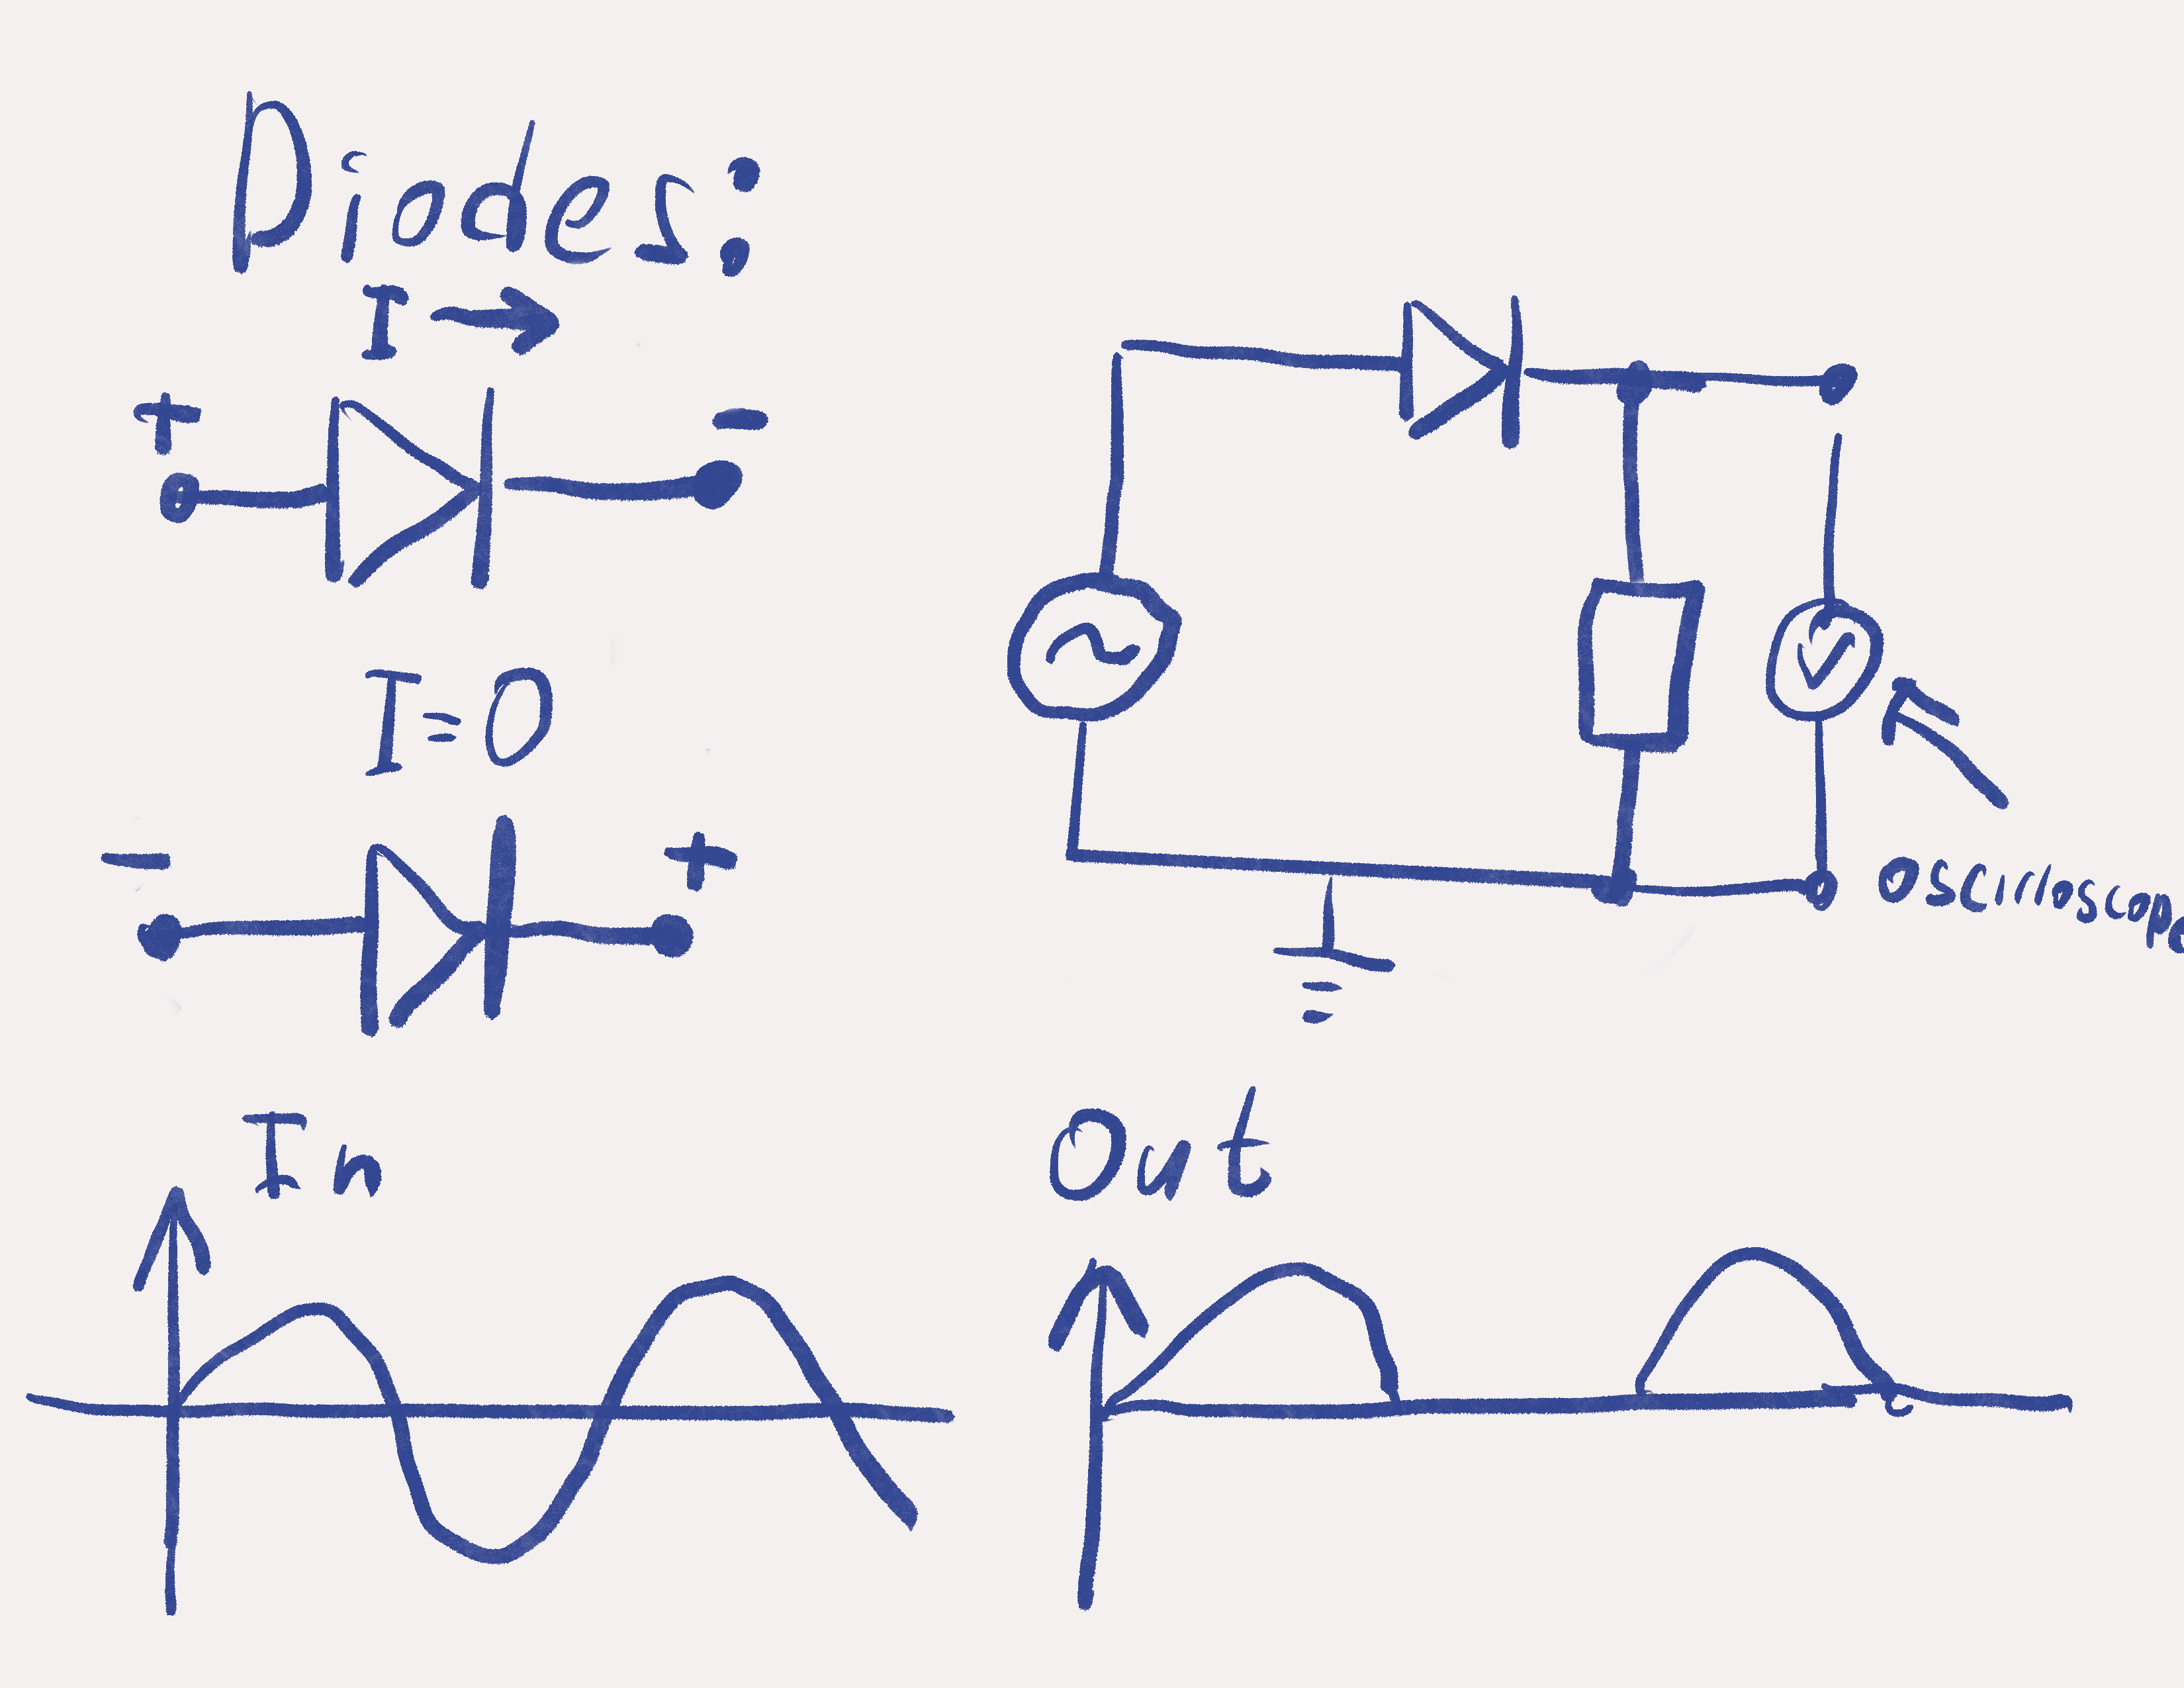 Diodes:
I →
+ -
I=0
- +
V
oscilloscope
In
Out